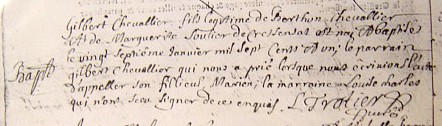 Gilbert Chevallier fils legitime de Berthon Chevallier
et de Marguerite Soulier de Cressensat est né et Baptisé
le vingt septieme Janvier mil sept cents et un, le parrain
Bapt gilbert Chevallier qui nous a prié lorsque nous écrivions
d'appeller son filleul Marien, la marraine Louise charles
qui nont sceu signer de ce enquis.